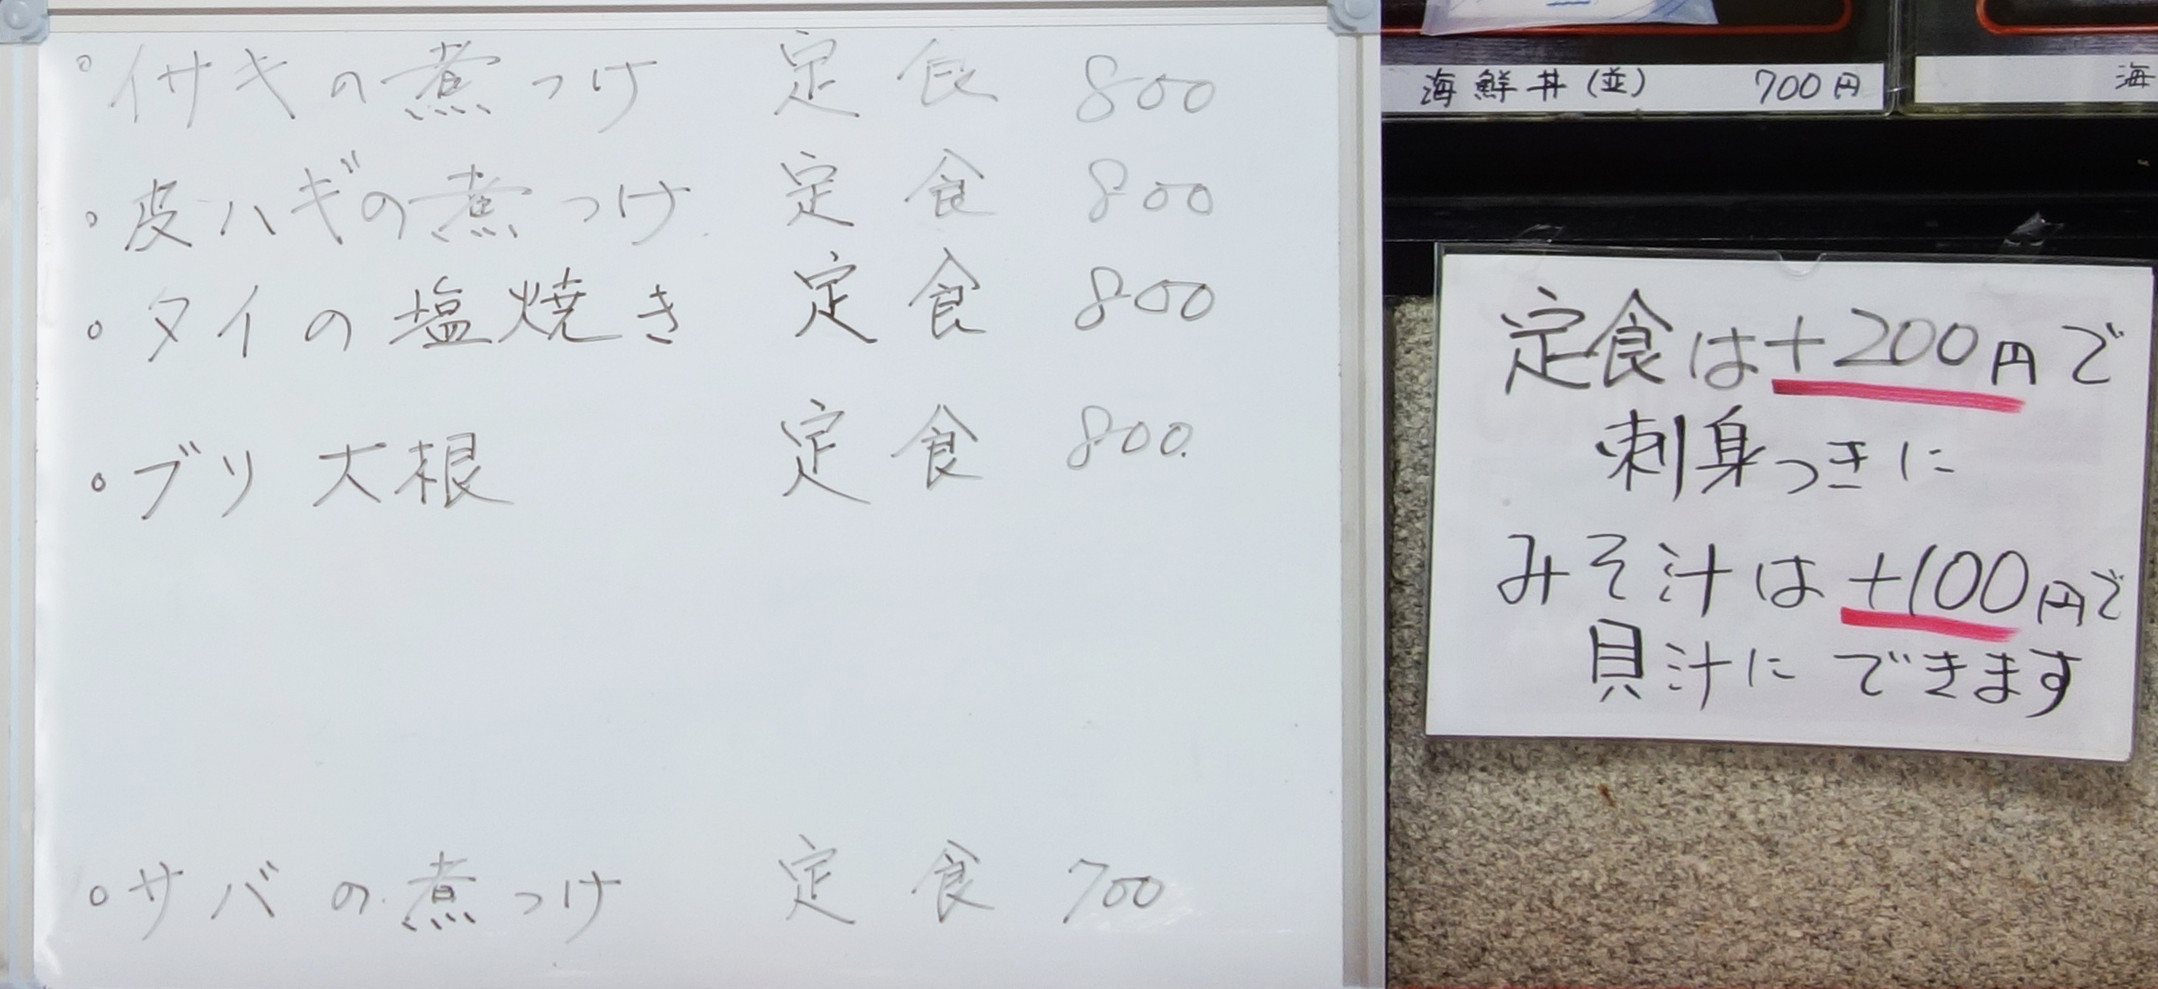 ・イサキの煮つけ 定食 800
・皮ハギの煮つけ 定食 800
・タイの塩焼き 定食 800
・ブリ大根 定食 800.
・サバの煮つけ 定食 700
海鮮丼(並) 700円
海
定食は+200円で
刺身つきに
みそ汁は+100円で
貝汁にできます